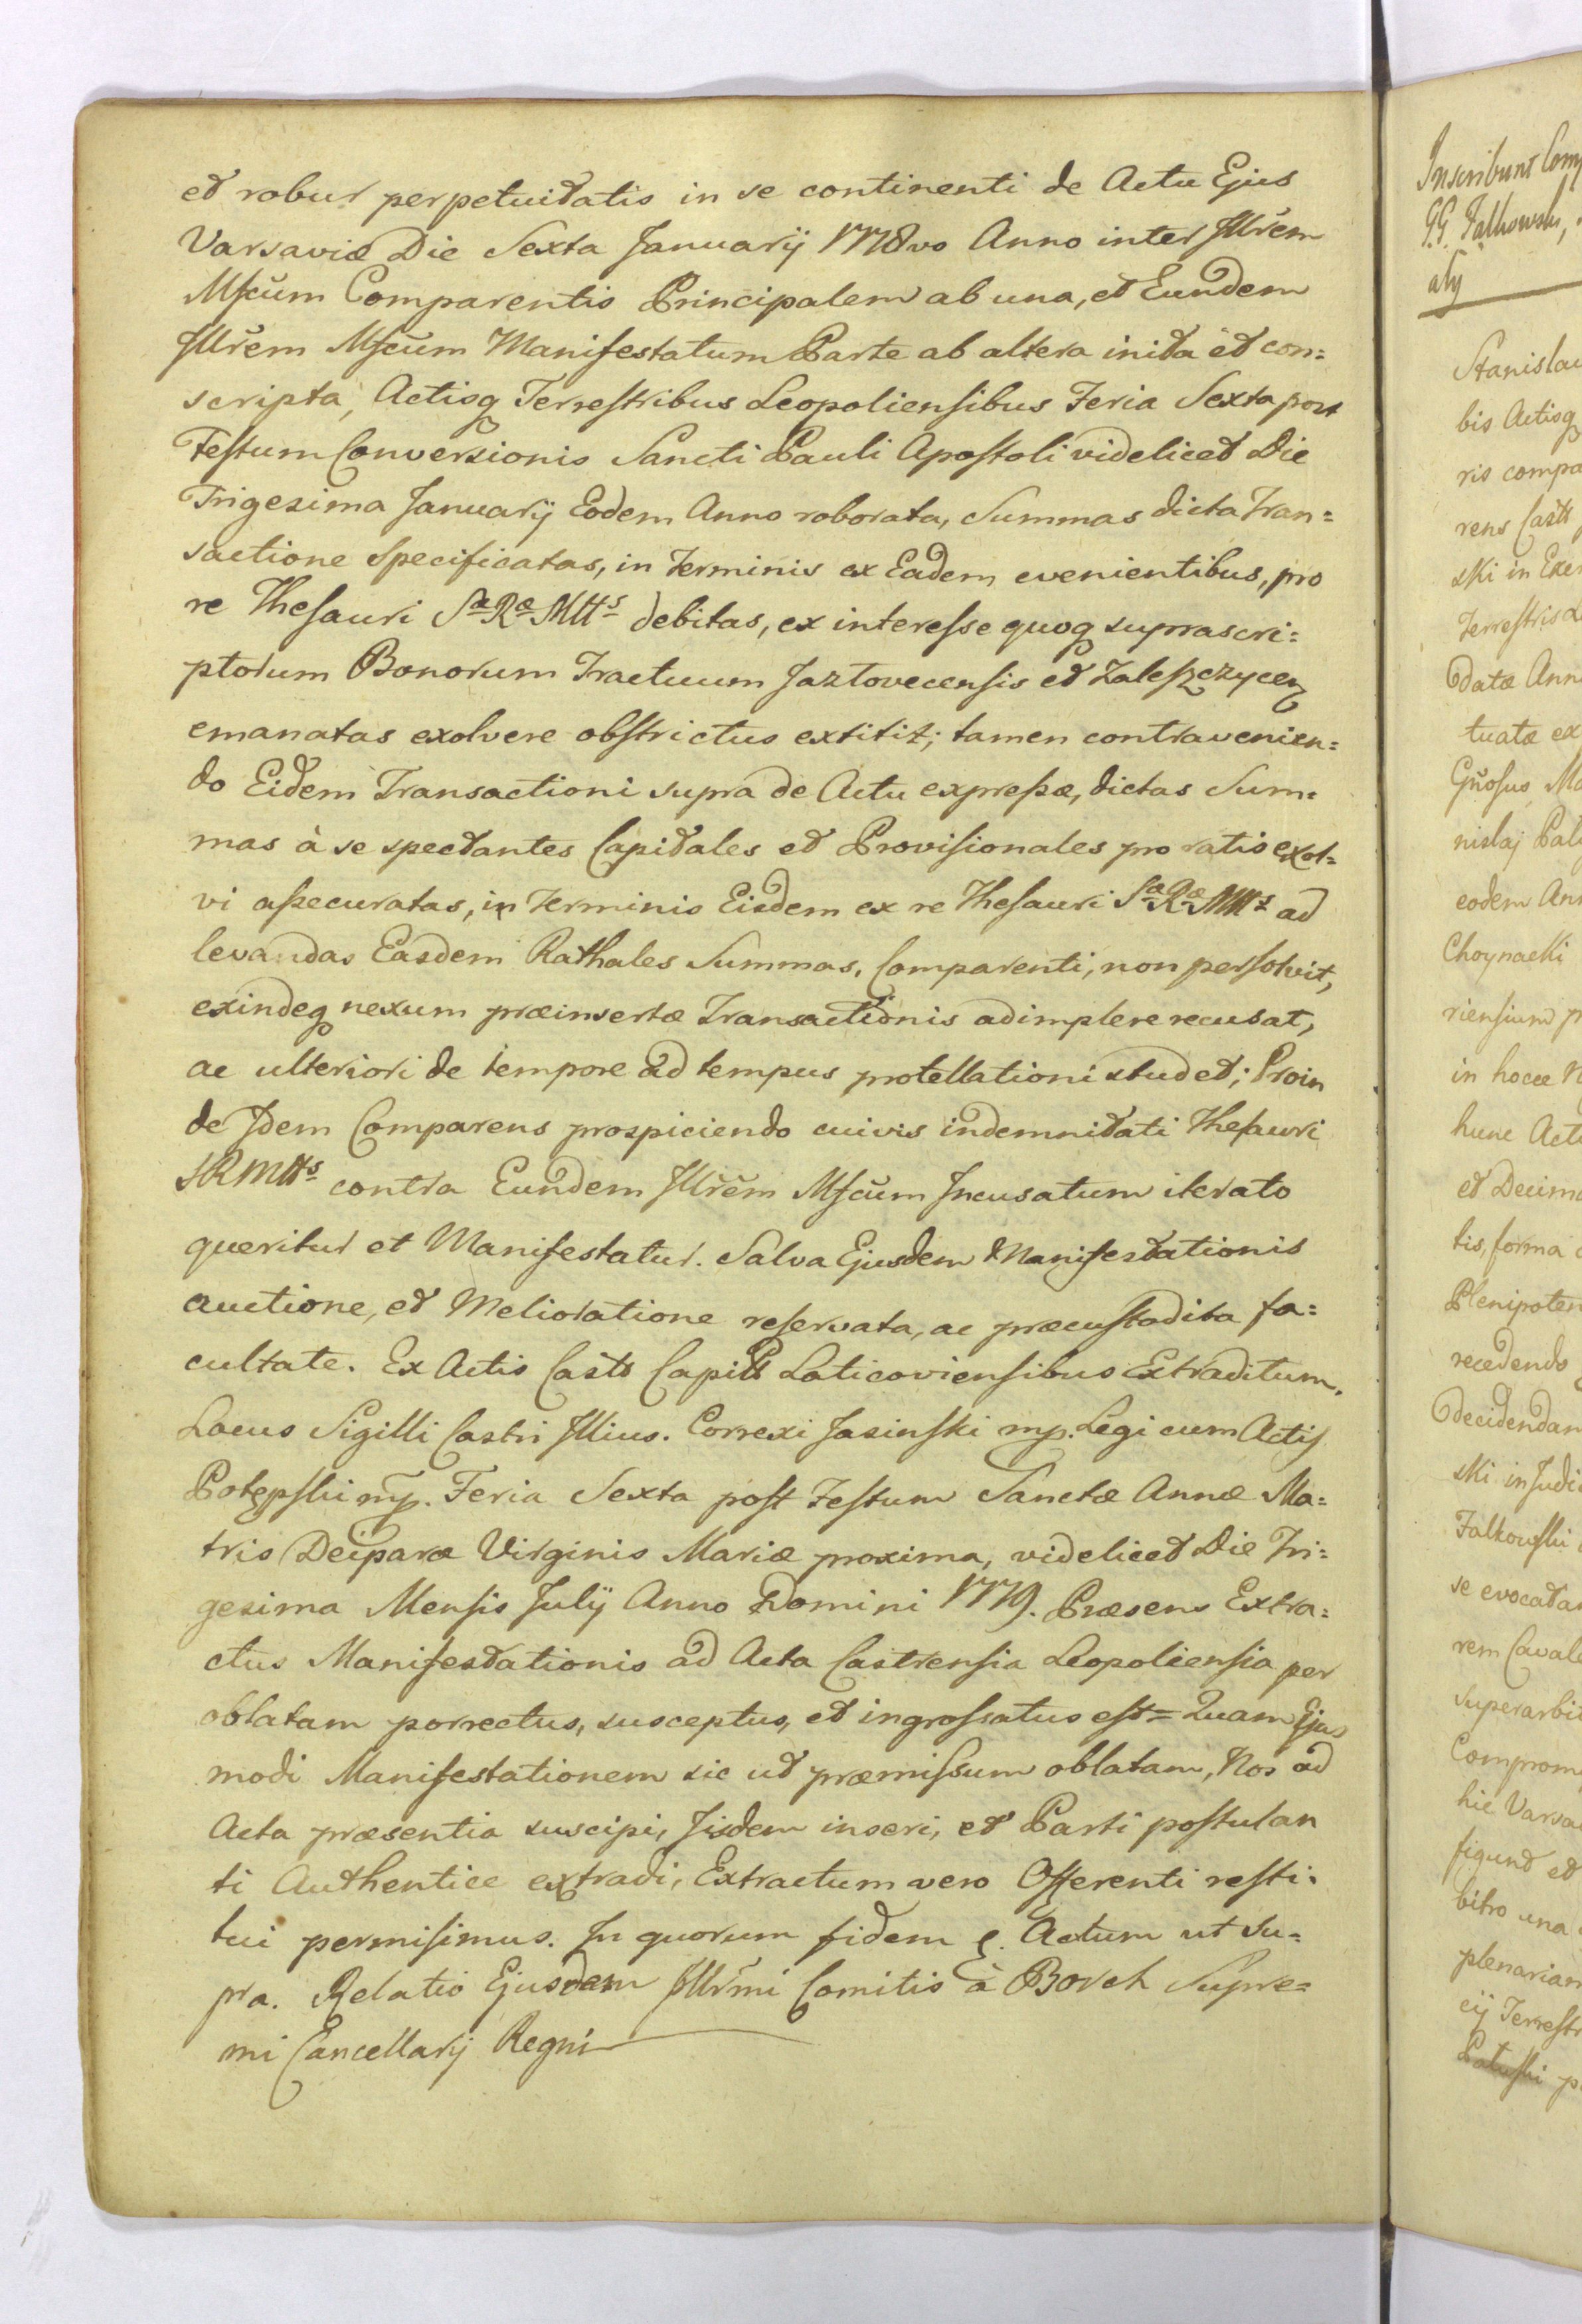 et robur perpetuitatis in se continenti de Actu Ejus
Varsaviæ Die Sexta Januarÿ 1778vo Anno inter Jllrĕm
Mfcŭm Comparentis Principalem ab una, et Eundem
Jllrĕm Mfcŭm Manifestatum Parte ab altera inita et con=
scripta, Actisq Terrestribus Leopoliensibus Feria Sexta post
Festum Conversionis Sancti Pauli Apostoli videlicet Die
Trigesima Januarÿ Eodem Anno roborata, Summas dicta Tran=
sactione Specificatas, in Terminis ex Eadem evenientibus, pro
re Thesauri Sæ Ræ Mtts debitas, ex interesse quoq suprascri=
ptorum Bonorum Tractuum Jazłovecensis et Zaleszczycen
emanatas exolvere obstrictus extitit; tamen contravenien=
do Eidem Transactioni supra de Actu expressæ, dictas Sum=
mas à se spectantes Capitales et Provisionales pro ratis exol=
vi assecuratas, in Terminis Eisdem ex re Thesauri Sæ Ræ Mtts ad
levandas Easdem Rathales Summas, Comparenti, non persolvit,
exindeq nexum præinsertæ Transactionis adimplere recusat,
ac ulteriori de tempore ad tempus protellationi studet; Proin
de Jdem Comparens prospiciendo cuivis indemnitati Thesauri
SRMtts contra Eundem Jllrĕm Mfcŭm Jncusatum iterato
queritur et Manifestatur. Salva Ejusdem Manifestationis
auctione, et Melioratione reservata, ac præcustodita fa=
cultate. Ex Actis Casts Capitt Laticoviensibus Extraditum.
Locus Sigilli Castri Jllius. Correxi Jasinski mp. Legi cum Actis
Potępski mp. Feria Sexta post Festum Sanctæ Annæ Ma=
tris Deiparæ Virginis Mariæ proxima, videlicet Die Tri=
gesima Mensis Julÿ Anno Domini 1779. Præsens Extra=
ctus Manifestationis ad Acta Castrensia Leopoliensia per
oblatam porrectus, susceptus, et ingrossatus est= Quam Ejus
modi Manifestationem sic ut præmissum oblatam, Nos ad
Acta præsentia suscipi, Jisdem inseri, et Parti postulan
ti Authentice extradi, Extractum vero Offerenti resti=
tui permisimus. Jn quorum fidem &. Actum ut Su=
pra. Relatio Ejusdem Jllrmi Comitis à Borch Supre=
mi Cancellarÿ Regni
Jnscribunt Com
G.G. Falkowski,
aly
Stanislau
bis Actisq
ris compa
rens Casts
ski in Exe
Terrestris L
datæ Ann
tuatæ ex
Gñosus Ma
nislaj Pal
eodem An
Choynacki
riensium p
in hocce N
hunc Act
et Decim
tis, forma
Plenipoten
recedendo
decidendam
ski in Judi
Falkowski
se evocata
rem Caval
Superarbi
Comprom
hic Varsa
figunt et
bitro una
plenariam
cÿ Terrestr